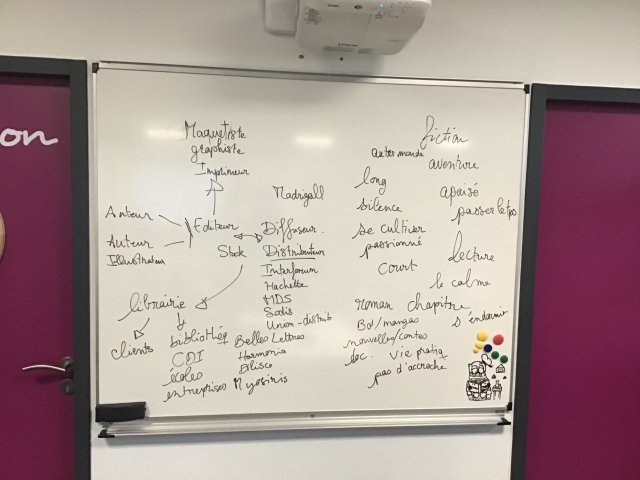 on
Maquettiste
graphiste
Imprimeur
Auteur
Auteur
Illustrateur
Editeur
Stock
librairie
clients
bibliothèq
CDI
écoles
entreprises
Madrigall
Diffuseur.
Distributeur
Interforum
Hachette
MDS
Sodis
Union-distrib
Belles Lettres
Harmonia
Blisco
Myosinis
fiction
autre monde
aventure
long
apaisé
silence
passer le tps
se cultiver
passionné
lecture
court
le calme
roman chapitre
s'endormir
Bd/mangas
nouvelles/contes
doc. vie pratiq
pas d'accroché